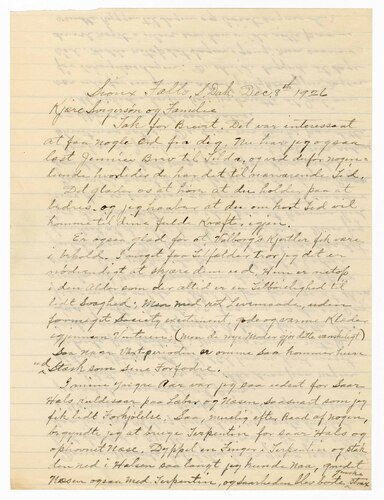 Sioux Falls, S. Dak. Dec 8th 1926
Kjære Svigersøn og Familie
Tak for Brevet. Det var interessant
at faa nogle Ord fra dig. Nu har jeg ogsaa
læst Jennies Brev til Tilda, og ved derfor nogen-
lunde hvordan de har det til nærværende Tid.
Det glæder os at høre at du holder paa at
bedres, og jeg haaber at du om kort Tid vil
komme til dine fulde Kræfter igjen.
Er ogsaa glad for at Valborgs Kjertler fik være
i behold. I noget faa Tilfælder tror jeg det er
nødvendigt at skjære dem ud. Hun er netop
i den Alder som der altid er en Tilbøielighed til
lidt Svaghed; Men med ret Levemaade, uden
formeget Society, excitement, gode og varme Klæder
igjennem Vinteren; (men de nye Moder gjør dette vanskeligt)
Saa naar Vækstperioden er omme saa kommer hun
ud Stærk som sine Forfædre.
I mine yngre Aar var jeg saa udsat for Saar
Hals, rald saar paa Læber og Næsen, saasnart som jeg
fik lidt Forkjølelse. Saa, efter Raad af Nogen,
begyndte jeg at bruge Terpentin for saar Hals og
opsvomet Næse, Dyppet en Finger i Terpentin og stak
den ned i Halsen saa langt jeg kunde naa, gnedet
Næsen ogsaa med Terpentin, og Saarheden blev borte